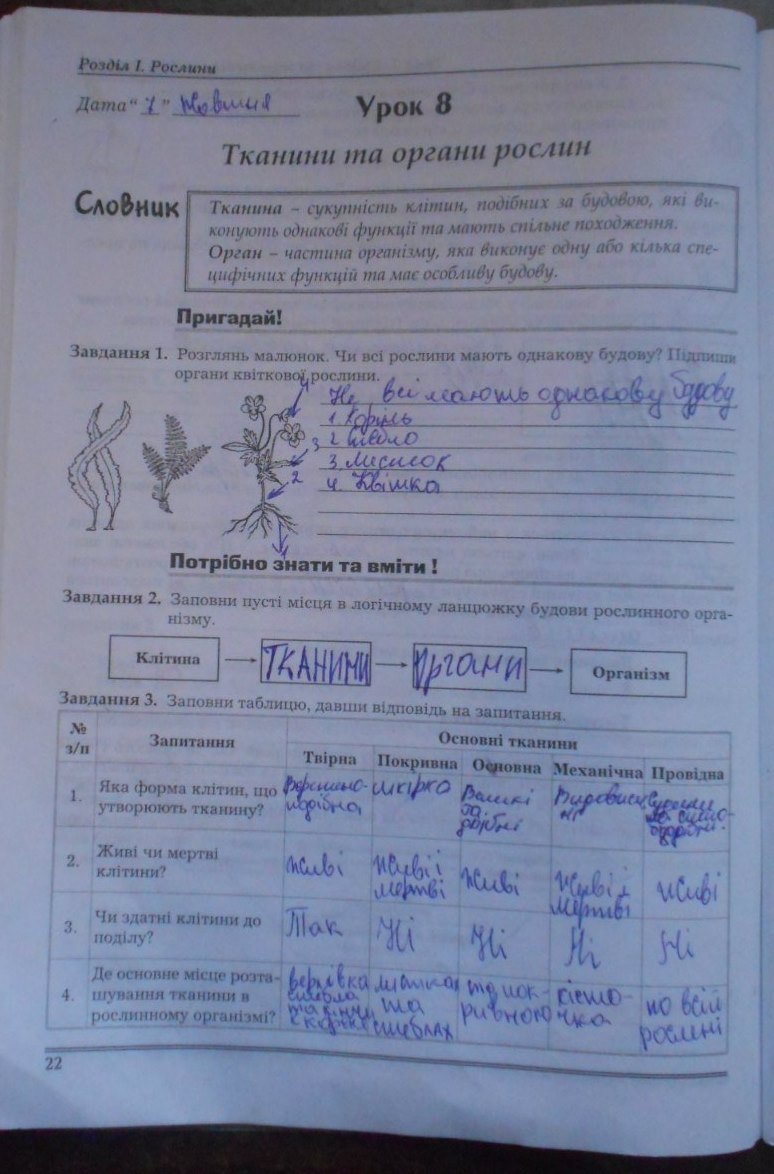 Розділ І. Рослини
Дата “ 7 ” жовтня
Урок 8
Тканини та органи рослин
Словник
Тканина – сукупність клітин, подібних за будовою, які ви-
конують однакові функції та мають спільне походження.
Орган – частина організму, яка виконує одну або кілька спе-
цифічних функцій та має особливу будову.
Пригадай!
Завдання 1. Розглянь малюнок. Чи всі рослини мають однакову будову? Підпиши
органи квіткової рослини.
Не всі мають однакову будову
1. Корінь
2. Стебло
3. Листок
4. Квітка
4
3
2
1
Потрібно знати та вміти !
Завдання 2. Заповни пусті місця в логічному ланцюжку будови рослинного орга-
нізму.
Клітина ТКАНИНИ Органи Організм
Завдання 3. Заповни таблицю, давши відповідь на запитання.
№ з/п Запитання Основні тканини
Твірна Покривна Основна Механічна Провідна
1. Яка форма клітин, що
утворюють тканину?
шкірка
Великі
та
дрібні
2. Живі чи мертві
клітини?
живі
Живі і
мертві
Живі
Живі і
Мертві
живі
3. Чи здатні клітини до
поділу?
Так Ні Ні Ні Ні
4. Де основне місце розта-
шування тканини в
рослинному організмі?
верхівка
стебла
та
листках
та
стеблах
під пок-
ривною
кісто-
чка
по всій
рослині
22